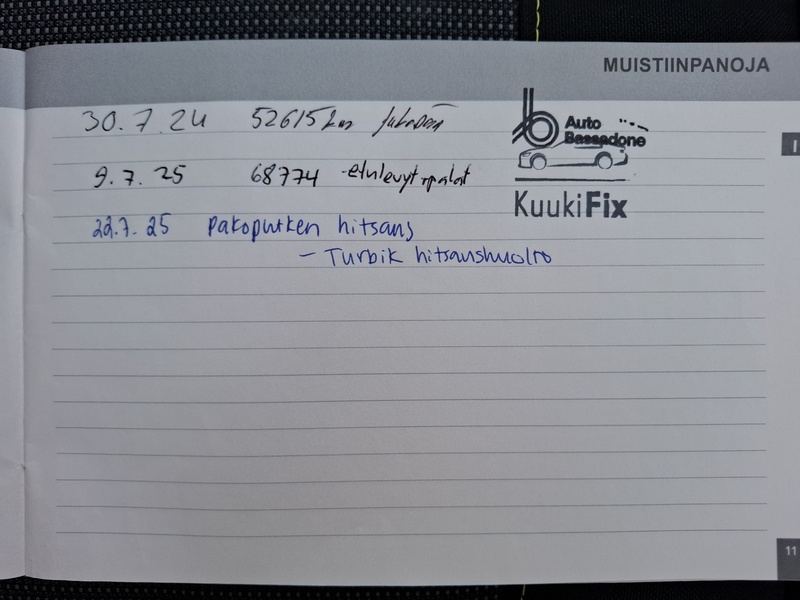 MUISTIINPANOJA
30.7.24 52615 km
Auto
Bassadone
9.7.25 68774 -etulevyt+palat
KuukiFix
22.7.25 Pakoputken hitsaus
- Turbik hitsaushuolto
11